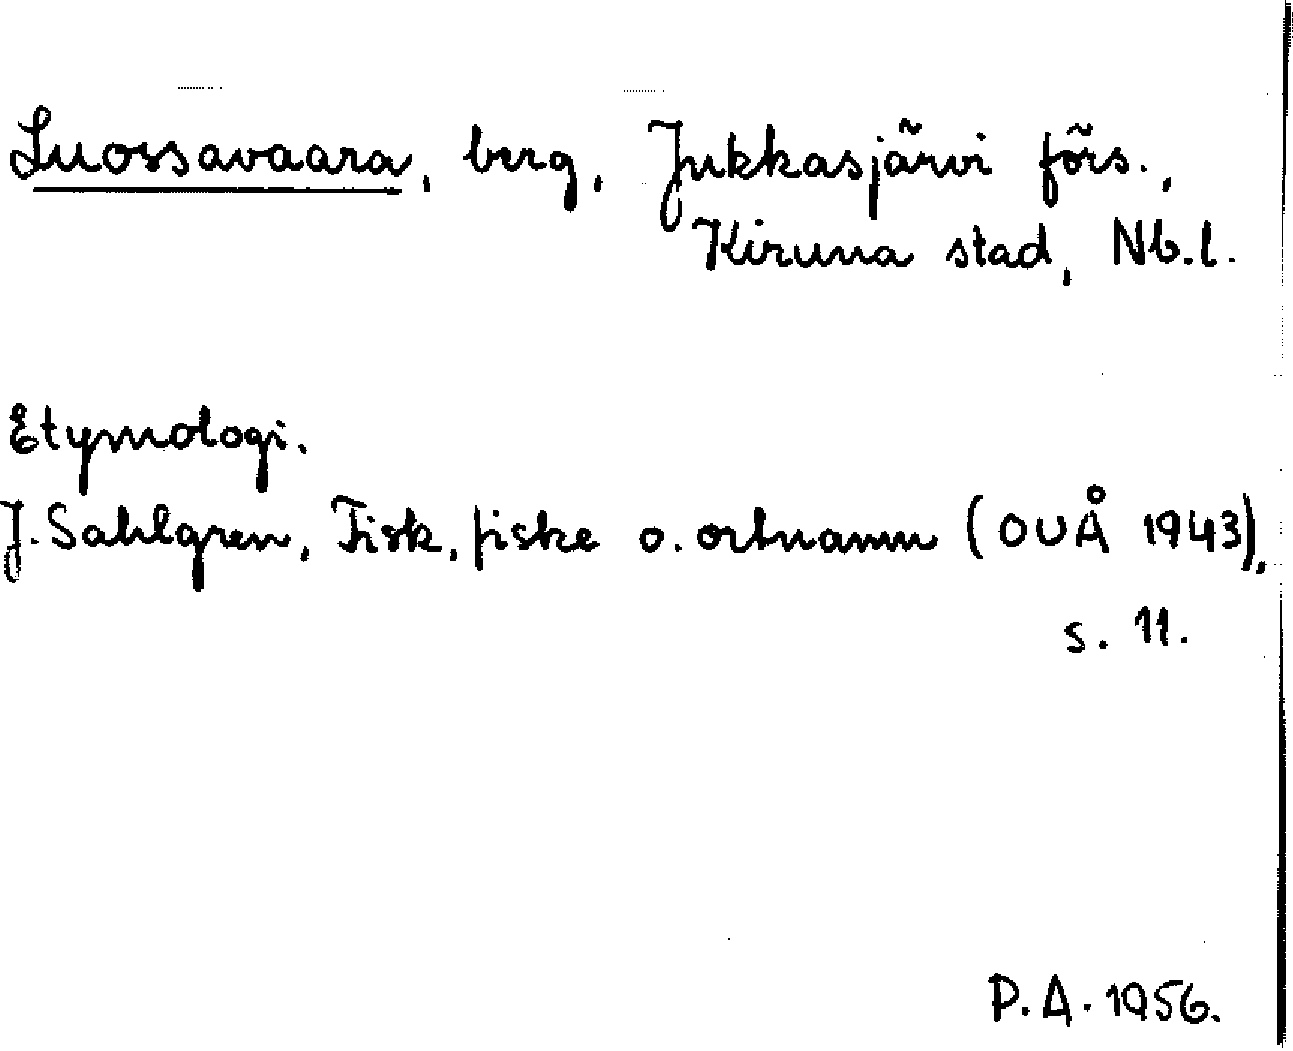 Luossavaara, berg, Jukkasjärvi förs.,
Kiruna stad, Nb.l.
Etymologi.
J. Sahlgren, Fisk, fiske o. ortnamn (OUÅ 1943),
s. 11.
P.A. 1956.